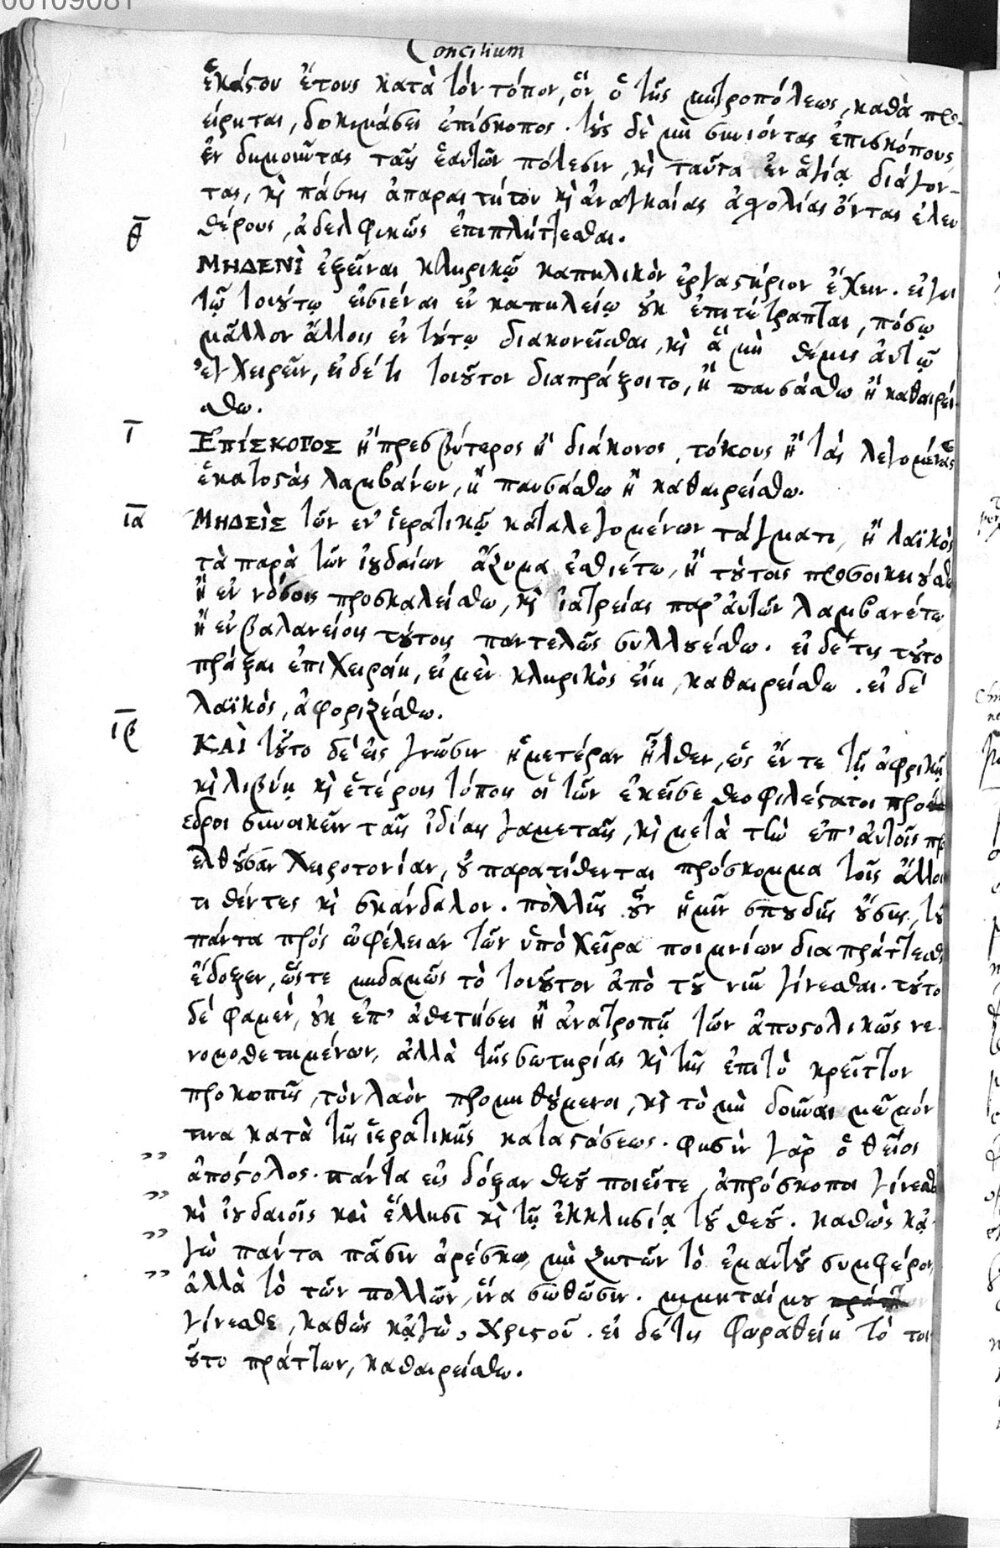 00109081
Concilium
ἑκάστου ἔτους κατὰ τὸν τόπον, ὃν ὁ τῆς μητροπόλεως, καθὰ προ-
είρηται, δοκιμάσει ἐπίσκοπος. τοὺς δὲ μὴ συνιόντας ἐπισκόπους
ἐνδημοῦντας ταῖς ἑαυτῶν πόλεσιν, καὶ ταῦτα ἐν ὑγείᾳ διάγον-
τας, καὶ πάσης ἀπαραιτήτου καὶ ἀναγκαίας ἀσχολίας ὄντας ἐλευ
θέρους, ἀδελφικῶς ἐπιπλήττεσθαι.
θ
ΜΗΔΕΝῚ ἐξεῖναι κληρικῷ καπηλικὸν ἐργαστήριον ἔχειν. εἰ γὰρ
τῷ τοιούτῳ εἰσιέναι ἐν καπηλείῳ οὐκ ἐπιτέτραπται, πόσῳ
μᾶλλον ἄλλοις ἐν τούτῳ διακονεῖσθαι, καὶ ἃ μὴ θέμις αὐτῷ
ἐγχειρεῖν, εἰ δέ τι τοιοῦτον διαπράξοιτο, ἢ παυσάσθω ἢ καθαιρεί-
σθω.
ι
ἘΠΊΣΚΟΠΟΣ ἢ πρεσβύτερος ἢ διάκονος, τόκους ἢ τὰς λεγομένας
ἑκατοστὰς λαμβάνων, ἢ παυσάσθω ἢ καθαιρείσθω.
ια
ΜΗΔΕῚΣ τῶν ἐν ἱερατικῷ καταλεγομένων τάγματι, ἢ λαϊκὸς
τὰ παρὰ τῶν ἰουδαίων ἄζυμα ἐσθιέτω, ἢ τούτοις προσοικειούσθω
ἢ ἐν νόσοις προσκαλείσθω, καὶ ἰατρείας παρ' αὐτῶν λαμβανέτω
ἢ ἐν βαλανείοις τούτοις παντελῶς συλλουέσθω. εἰ δέ τις τοῦτο
πρᾶξαι ἐπιχειροίη, εἰ μὲν κληρικὸς εἴη, καθαιρείσθω. εἰ δὲ
λαϊκὸς, ἀφοριζέσθω.
ιβ
ΚΑῚ τοῦτο δὲ εἰς γνῶσιν ἡμετέραν ἦλθεν, ὡς ἔν τε τῇ ἀφρικῇ
καὶ λιβύῃ καὶ ἑτέροις τόποις οἱ τῶν ἐκεῖσε θεοφιλέστατοι πρόε
εδροι συνοικεῖν ταῖς ἰδίαις γαμεταῖς, καὶ μετὰ τὴν ἐπ' αὐτοῖς πρ
ελθοῦσαν χειροτονίαν, οὐ παρατίθενται πρόσκομμα τοῖς ἄλλοις
τιθέντες καὶ σκάνδαλον. πολλῆς οὖν ἡμῖν σπουδῆς οὔσης, τοῦ
πάντα πρὸς ὠφέλειαν τῶν ὑπὸ χεῖρα ποιμνίων διαπράττεσθαι
ἔδοξεν, ὥστε μηδαμῶς τὸ τοιοῦτον ἀπὸ τοῦ νῦν γίνεσθαι. τοῦτο
δέ φαμεν, οὐκ ἐπ' ἀθετήσει ἢ ἀνατροπῇ τῶν ἀποστολικῶς νε-
νομοθετημένων, ἀλλὰ τῆς σωτηρίας καὶ τῆς ἐπὶ τὸ κρεῖττον
προκοπῆς, τὸν λαὸν προμηθούμενοι, καὶ τὸ μὴ δοῦναι μῶμόν
τινα κατὰ τῆς ἱερατικῆς καταστάσεως. φησὶν γὰρ ὁ θεῖος
ἀπόστολος. πάντα εἰς δόξαν θεοῦ ποιεῖτε, ἀπρόσκοποι γίνεσθε
καὶ ἰουδαίοις καὶ ἕλλησι καὶ τῇ ἐκκλησίᾳ τοῦ θεοῦ. καθὼς κἀ-
γὼ πάντα πᾶσιν ἀρέσκω, μὴ ζητῶν τὸ ἐμαυτοῦ συμφέρον,
ἀλλὰ τὸ τῶν πολλῶν, ἵνα σωθῶσιν. μιμηταί μου
γίνεσθε, καθὼς κἀγὼ, Χριστοῦ. εἰ δέ τις φωραθείη τὸ τοι
οῦτο πράττων, καθαιρείσθω.